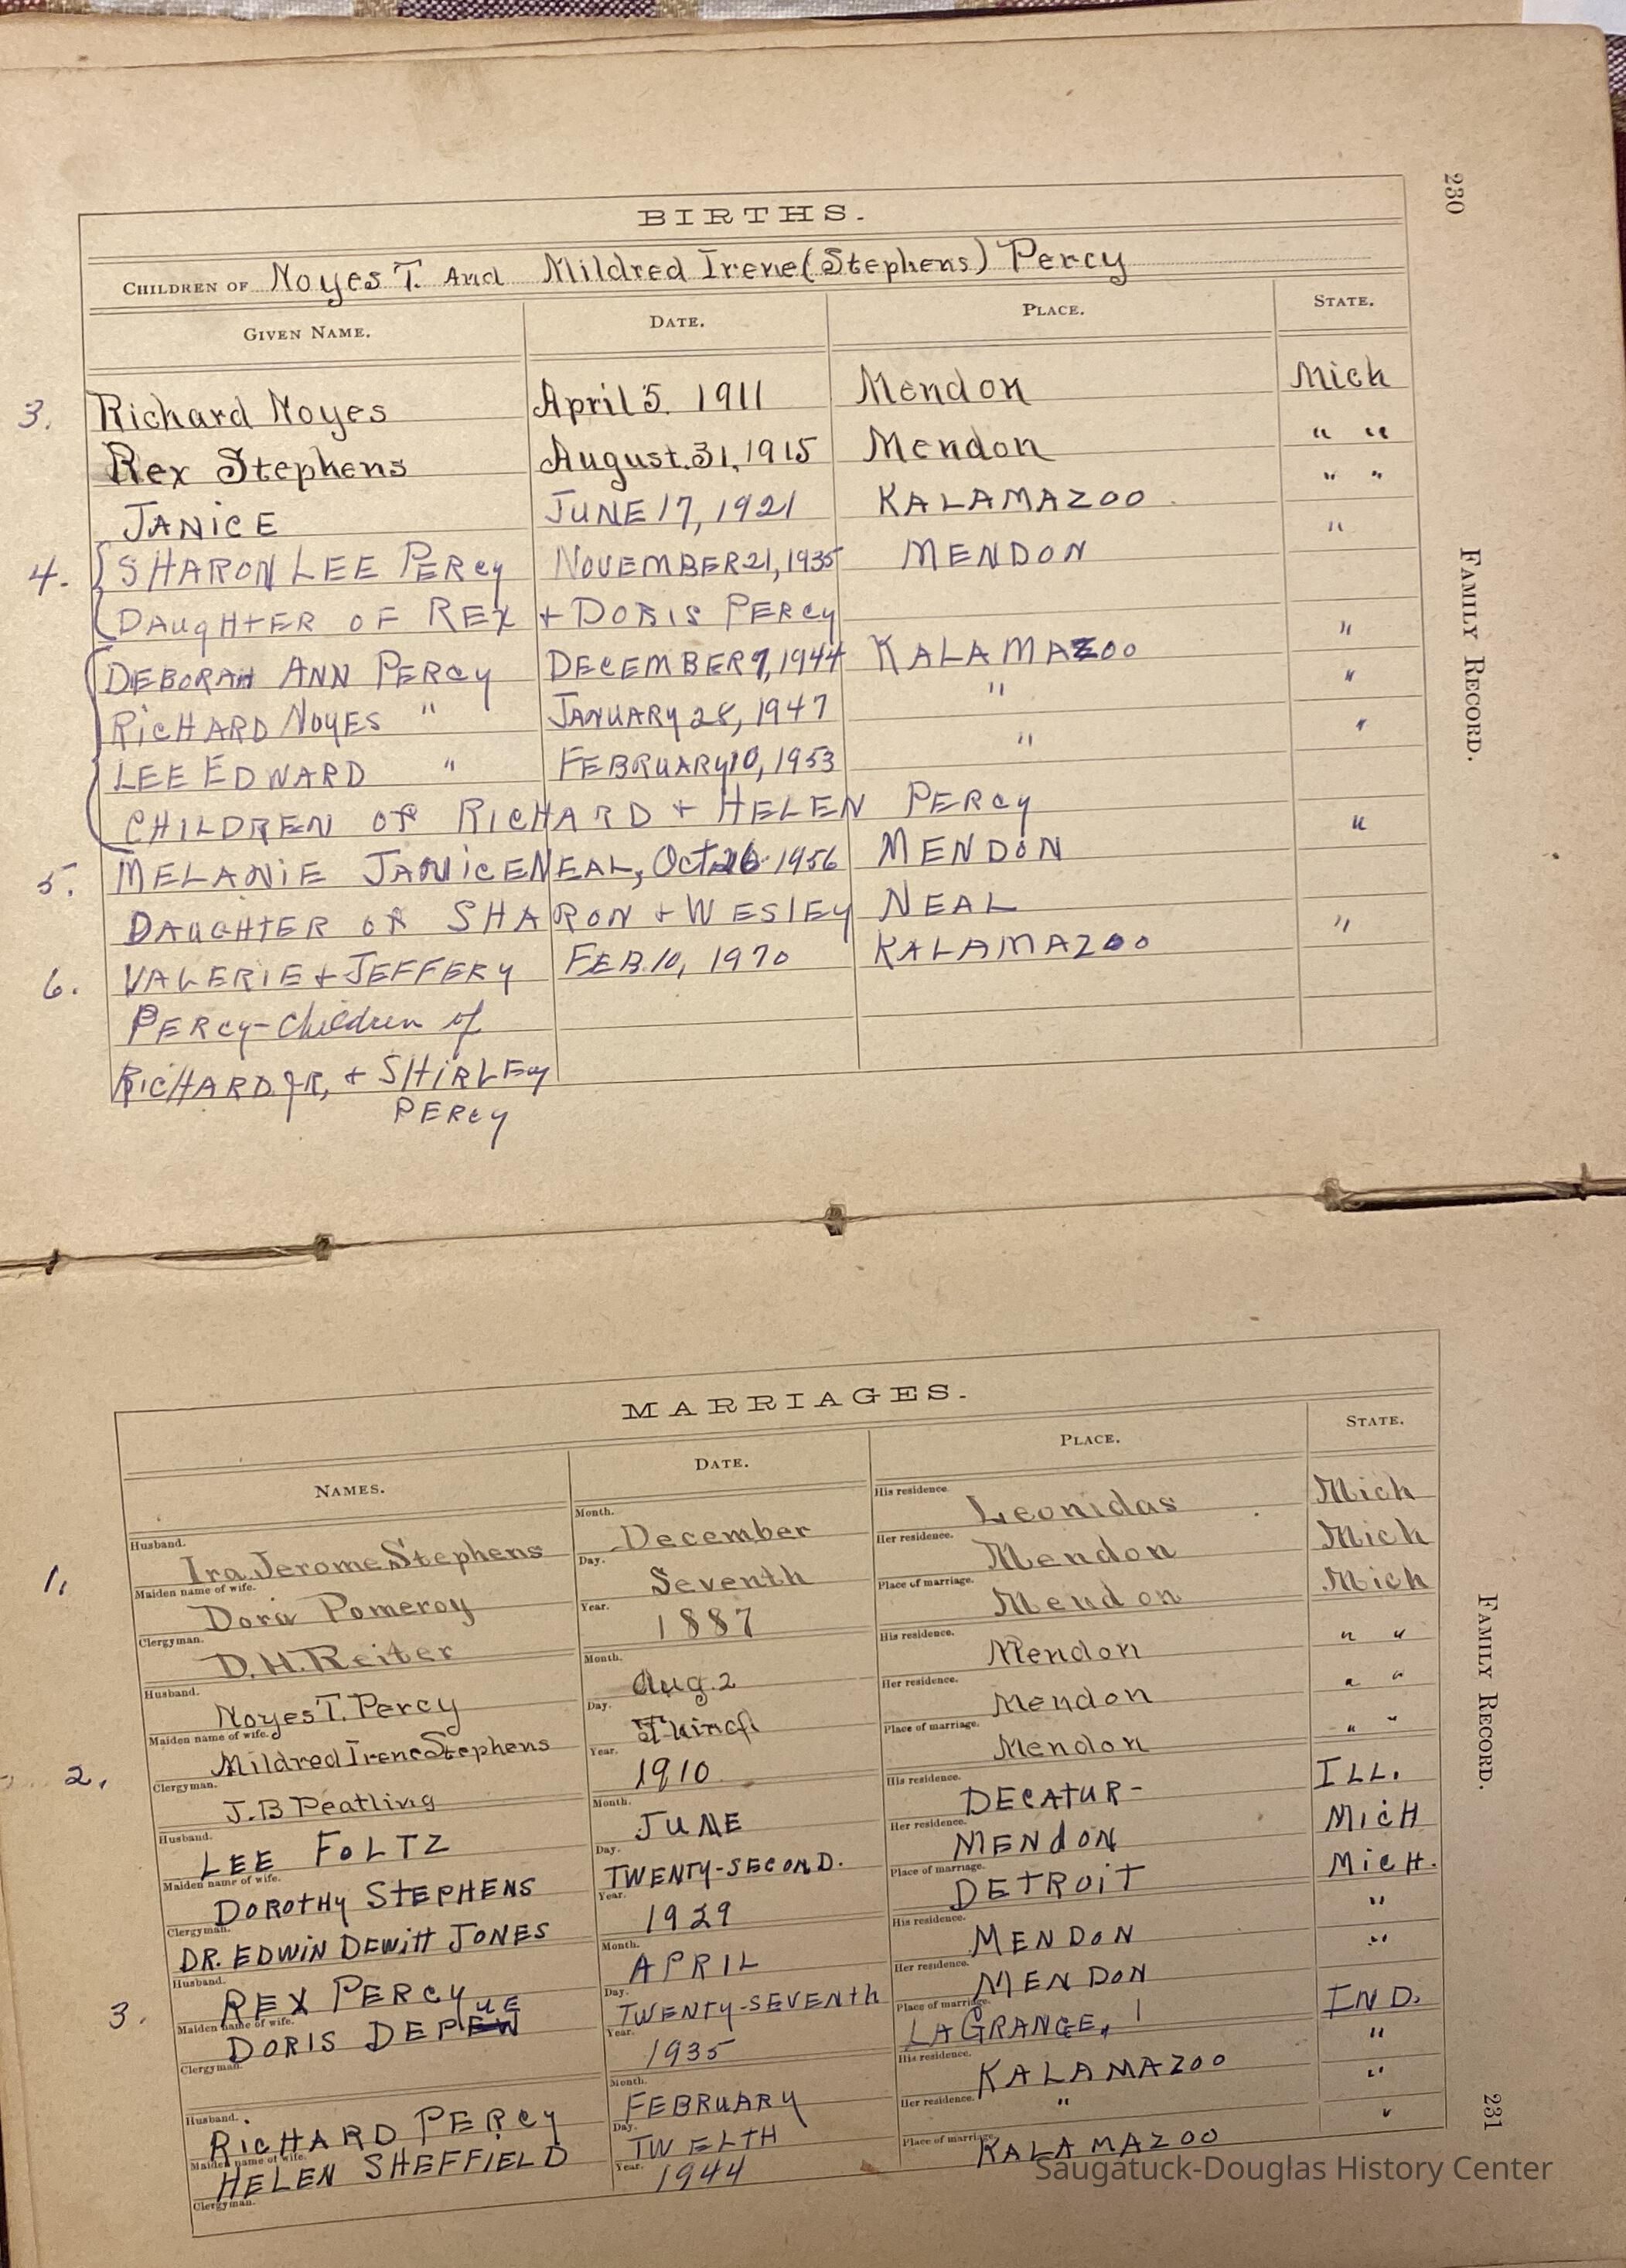 230
FAMILY RECORD.
BIRTHS.
CHILDREN OF Noyes T. And Mildred Irene (Stephens) Percy
GIVEN NAME. DATE. PLACE. STATE.
3. Richard Noyes April 5. 1911 Mendon Mich
Rex Stephens August. 31, 1915 Mendon " "
JANICE JUNE 17, 1921 KALAMAZOO " "
4. SHARON LEE PERCY NOVEMBER 21, 1935 MENDON "
DAUGHTER OF REX + DORIS PERCY
DEBORAH ANN PERCY DECEMBER 7, 1944 KALAMAZOO "
RICHARD NOYES " JANUARY 28, 1947 " "
LEE EDWARD " FEBRUARY 10, 1953 " "
CHILDREN OF RICHARD + HELEN PERCY
5. MELANIE JANICE NEAL, Oct. 26 1956 MENDON "
DAUGHTER OF SHARON + WESLEY NEAL
6. VALERIE + JEFFERY FEB. 10, 1970 KALAMAZOO "
PERCY - Children of
RICHARD JR, + SHIRLEY
PERCY
MARRIAGES.
NAMES. DATE. PLACE. STATE.
1. Husband. Ira Jerome Stephens Month. December His residence. Leonidas Mich
Maiden name of wife. Dora Pomeroy Day. Seventh Her residence. Mendon Mich
Clergyman. D. H. Reiter Year. 1887 Place of marriage. Mendon Mich
Husband. Noyes T. Percy Month. Aug. 2 His residence. Mendon " "
2. Maiden name of wife. Mildred Irene Stephens Day. Her residence. Mendon " "
Clergyman. J. B Peatling Year. 1910 Place of marriage. Mendon " "
Husband. LEE FOLTZ Month. JUNE His residence. DECATUR - ILL.
Maiden name of wife. DOROTHY STEPHENS Day. TWENTY-SECOND. Her residence. MENDON MICH
Clergyman. DR. EDWIN DEWITT JONES Year. 1929 Place of marriage. DETROIT MICH.
3. Husband. REX PERCY Month. APRIL His residence. MENDON "
Maiden name of wife. DORIS DEPUE Day. TWENTY-SEVENTH Her residence. MENDON "
Clergyman. Year. 1935 Place of marriage. LAGRANGE, IND.
Husband. RICHARD PERCY Month. FEBRUARY His residence. KALAMAZOO "
Maiden name of wife. HELEN SHEFFIELD Day. TWELTH Her residence. " "
Clergyman. Year. 1944 Place of marriage. KALAMAZOO "
FAMILY RECORD.
231
Saugatuck-Douglas History Center